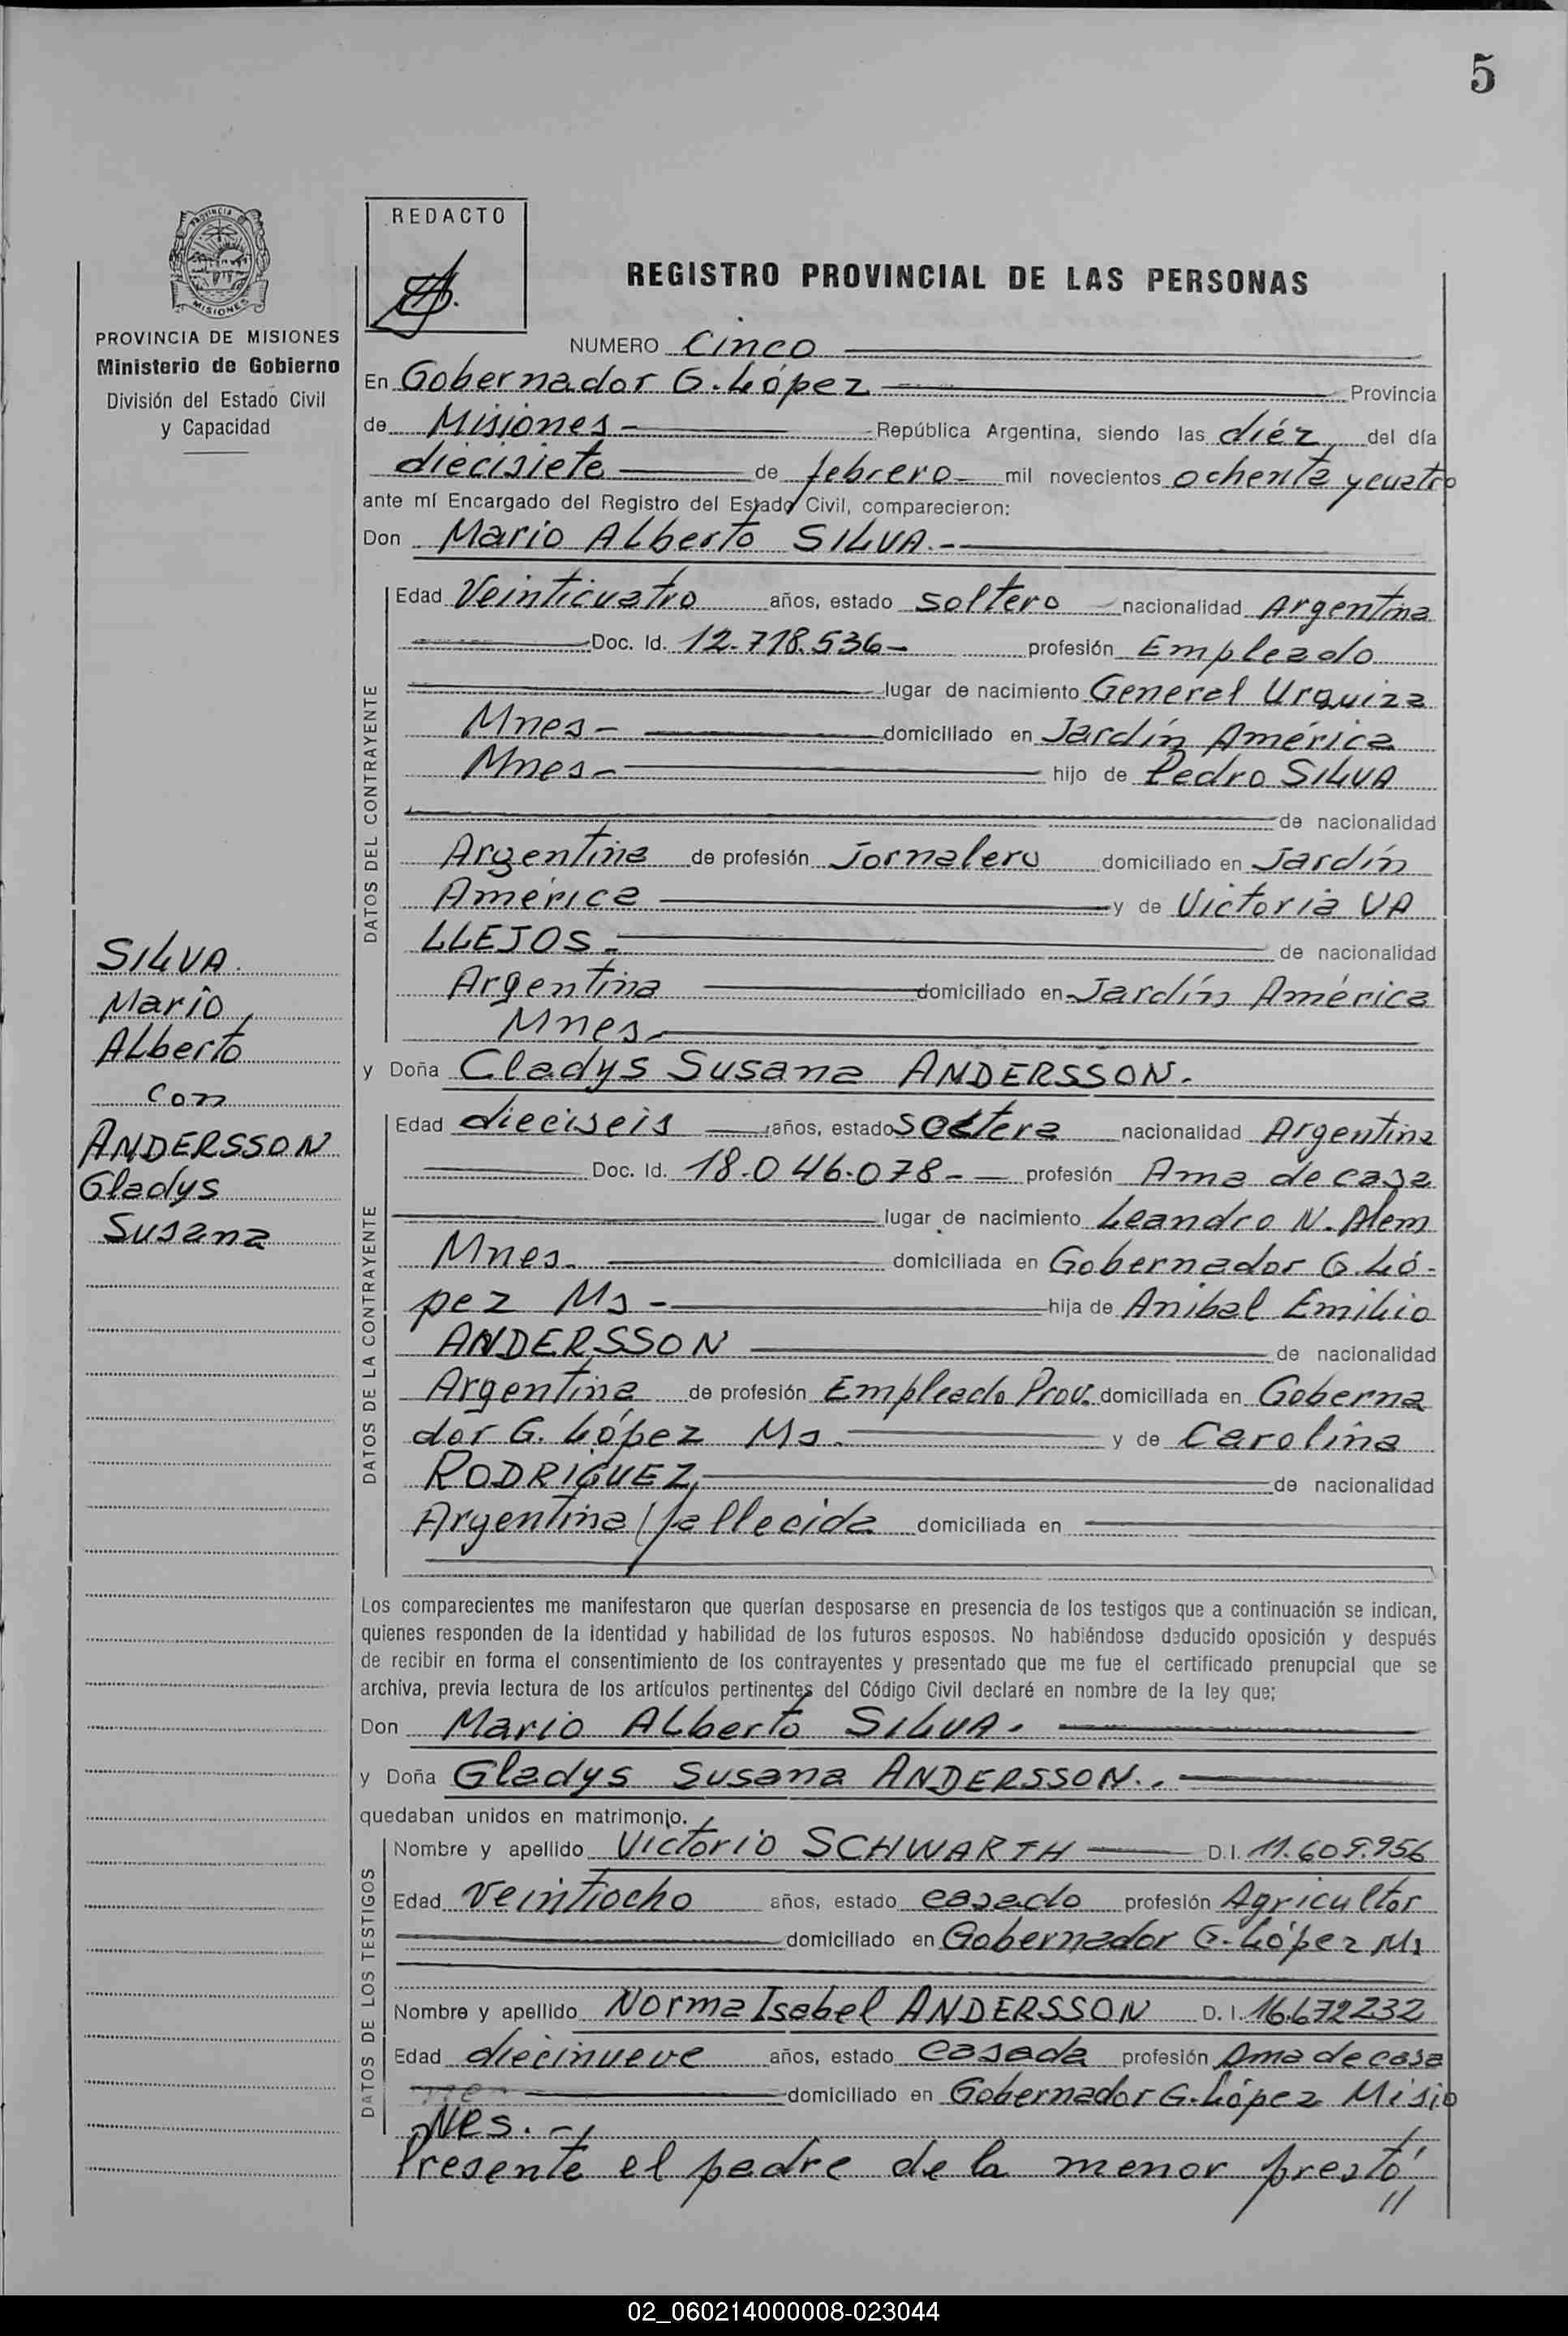 5
PROVINCIA DE MISIONES
MISIONES
PROVINCIA DE MISIONES
Ministerio de Gobierno
División del Estado Civil
y Capacidad
SILVA.
Mario
Alberto
con
ANDERSSON
Gladys
Susana
REDACTO
REGISTRO PROVINCIAL DE LAS PERSONAS
NUMERO Cinco
En Gobernador G. López Provincia
de Misiones- República Argentina, siendo las diéz del día
diecisiete de febrero- mil novecientos ochenta y cuatro
ante mí Encargado del Registro del Estado Civil, comparecieron:
Don Mario Alberto SILVA.-
DATOS DEL CONTRAYENTE
Edad Veinticuatro años, estado soltero nacionalidad Argentina
Doc. Id. 12.718.536- profesión Empleado
lugar de nacimiento General Urquiza
Mnes- domiciliado en Jardín América
Mnes- hijo de Pedro SILVA
de nacionalidad
Argentina de profesión Jornalero domiciliado en Jardín
América y de Victoria VA
LLEJOS- de nacionalidad
Argentina domiciliado en Jardín América
Mnes-
y Doña Gladys Susana ANDERSSON.
DATOS DE LA CONTRAYENTE
Edad dieciseis años, estado soltera nacionalidad Argentina
Doc. Id. 18.046.078-- profesión Ama de casa
lugar de nacimiento Leandro N. Alem
Mnes. domiciliada en Gobernador G. Ló-
pez Ms- hija de Anibal Emilio
ANDERSSON de nacionalidad
Argentina de profesión Empleado Prov. domiciliada en Goberna
dor G. López Ms. y de Carolina
RODRIGUEZ, de nacionalidad
Argentina/fallecida domiciliada en
Los comparecientes me manifestaron que querían desposarse en presencia de los testigos que a continuación se indican,
quienes responden de la identidad y habilidad de los futuros esposos. No habiéndose deducido oposición y después
de recibir en forma el consentimiento de los contrayentes y presentado que me fue el certificado prenupcial que se
archiva, previa lectura de los artículos pertinentes del Código Civil declaré en nombre de la ley que;
Don Mario Alberto SILVA.
y Doña Gladys Susana ANDERSSON..
quedaban unidos en matrimonio.
DATOS DE LOS TESTIGOS
Nombre y apellido Victorio SCHWARTH D.I. 11.609.956
Edad Veintiocho años, estado casado profesión Agricultor
domiciliado en Gobernador G. López Ms
Nombre y apellido Norma Isabel ANDERSSON D.I. 16.672232
Edad diecinueve años, estado casada profesión Ama de casa
domiciliado en Gobernador G. López Misio
Nes.-
Presente el padre de la menor prestó
//
02_060214000008-023044